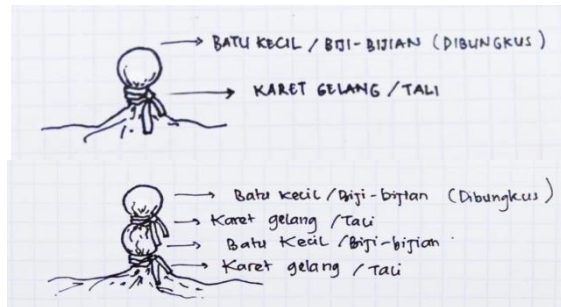 BATU KECIL / BIJI-BIJIAN (DIBUNGKUS)
KARET GELANG / TALI
Batu Kecil / Biji-bijian (Dibungkus)
Karet gelang / Tali
Batu Kecil / Biji-bijian
Karet gelang / Tali